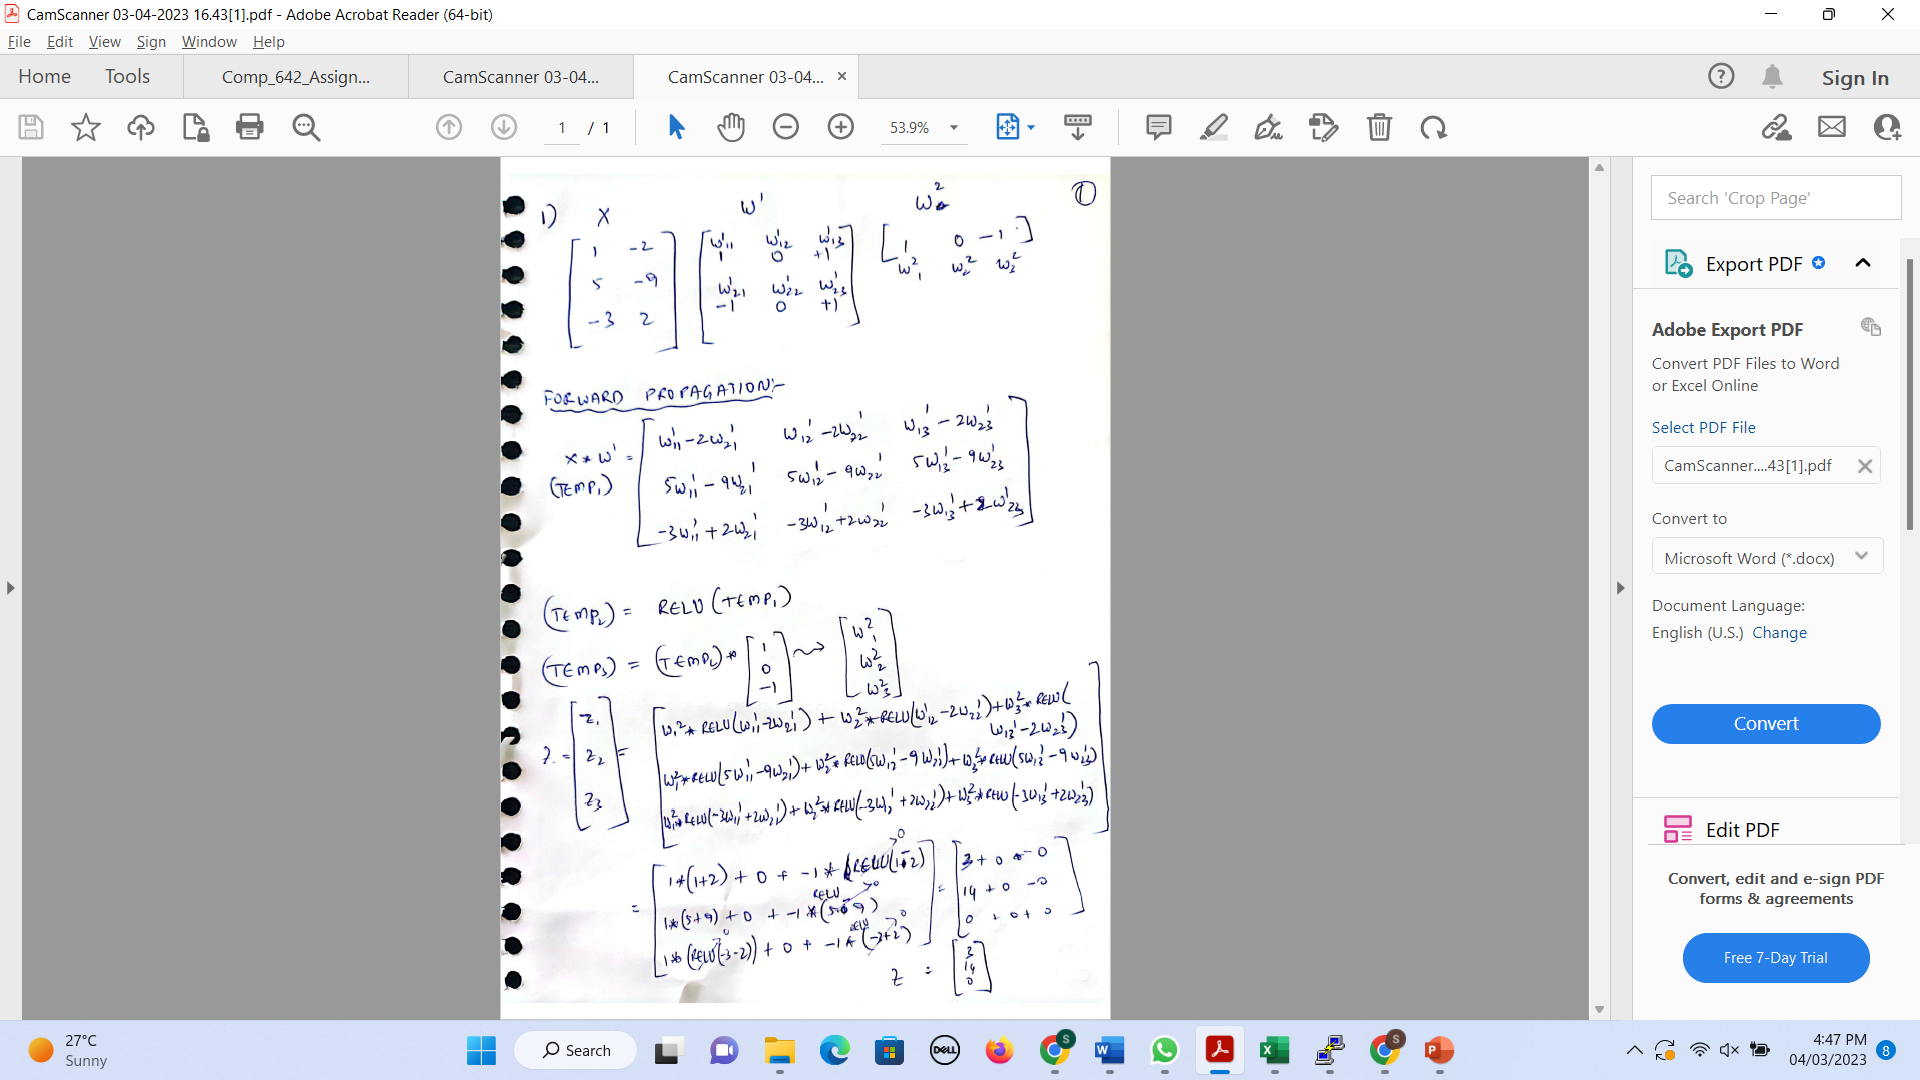 CamScanner 03-04-2023 16.43[1].pdf - Adobe Acrobat Reader (64-bit)
File Edit View Sign Window Help
Home Tools Comp_642_Assign... CamScanner 03-04... CamScanner 03-04... × Sign In
1 / 1 53.9%
1) X W¹ W² 1
1 -2
5 -9
-3 2
w¹₁₁ w¹₁₂ w¹₁₃
1 0 +1
w¹₂₁ w¹₂₂ w¹₂₃
-1 0 +1
1 0 -1
w²₁ w²₂ w²₃
FORWARD PROPAGATION:-
X * W¹ =
(TEMP₁)
w¹₁₁-2w¹₂₁ w¹₁₂-2w¹₂₂ w¹₁₃-2w¹₂₃
5w¹₁₁-9w¹₂₁ 5w¹₁₂-9w¹₂₂ 5w¹₁₃-9w¹₂₃
-3w¹₁₁+2w¹₂₁ -3w¹₁₂+2w¹₂₂ -3w¹₁₃+2w¹₂₃
(TEMP₂) = RELU (TEMP₁)
(TEMP₃) = (TEMP₂) *
1
0
-1
w²₁
w²₂
w²₃
Z =
z₁
z₂
z₃
=
w₁²*RELU(w¹₁₁-2w¹₂₁) + w₂²*RELU(w¹₁₂-2w¹₂₂)+w₃²*RELU(
w¹₁₃-2w¹₂₃)
w₁²*RELU(5w¹₁₁-9w¹₂₁)+w₂²*RELU(5w¹₁₂-9w¹₂₂)+w₃²*RELU(5w¹₁₃-9w¹₂₃)
w₁²*RELU(-3w¹₁₁+2w¹₂₁)+w₂²*RELU(-3w¹₁₂+2w¹₂₂)+w₃²*RELU(-3w¹₁₃+2w¹₂₃)
= 1*(1+2) + 0 + -1* (RELU(1-2) 0
1*(5+9) + 0 + -1*RELU(5-9) 0
1*(RELU(-3-2)) 0 + 0 + -1*RELU(-3+2) 0
= 3 + 0 - 0
14 + 0 - 0
0 + 0 + 0
Z =
3
14
0
Search 'Crop Page'
Export PDF
Adobe Export PDF
Convert PDF Files to Word
or Excel Online
Select PDF File
CamScanner....43[1].pdf
Convert to
Microsoft Word (*.docx)
Document Language:
English (U.S.) Change
Convert
Edit PDF
Convert, edit and e-sign PDF
forms & agreements
Free 7-Day Trial
27°C
Sunny
Search
DELL
S
S
4:47 PM
04/03/2023
8